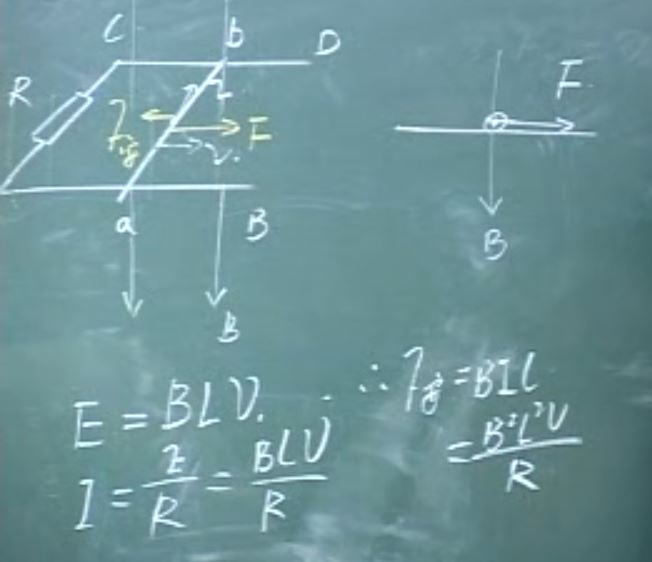 C b D
R
F安 F
v
a B
B
F
B
E = BLV.
I = E/R = BLV/R
∴ F安 = BIL
= B²L²V/R